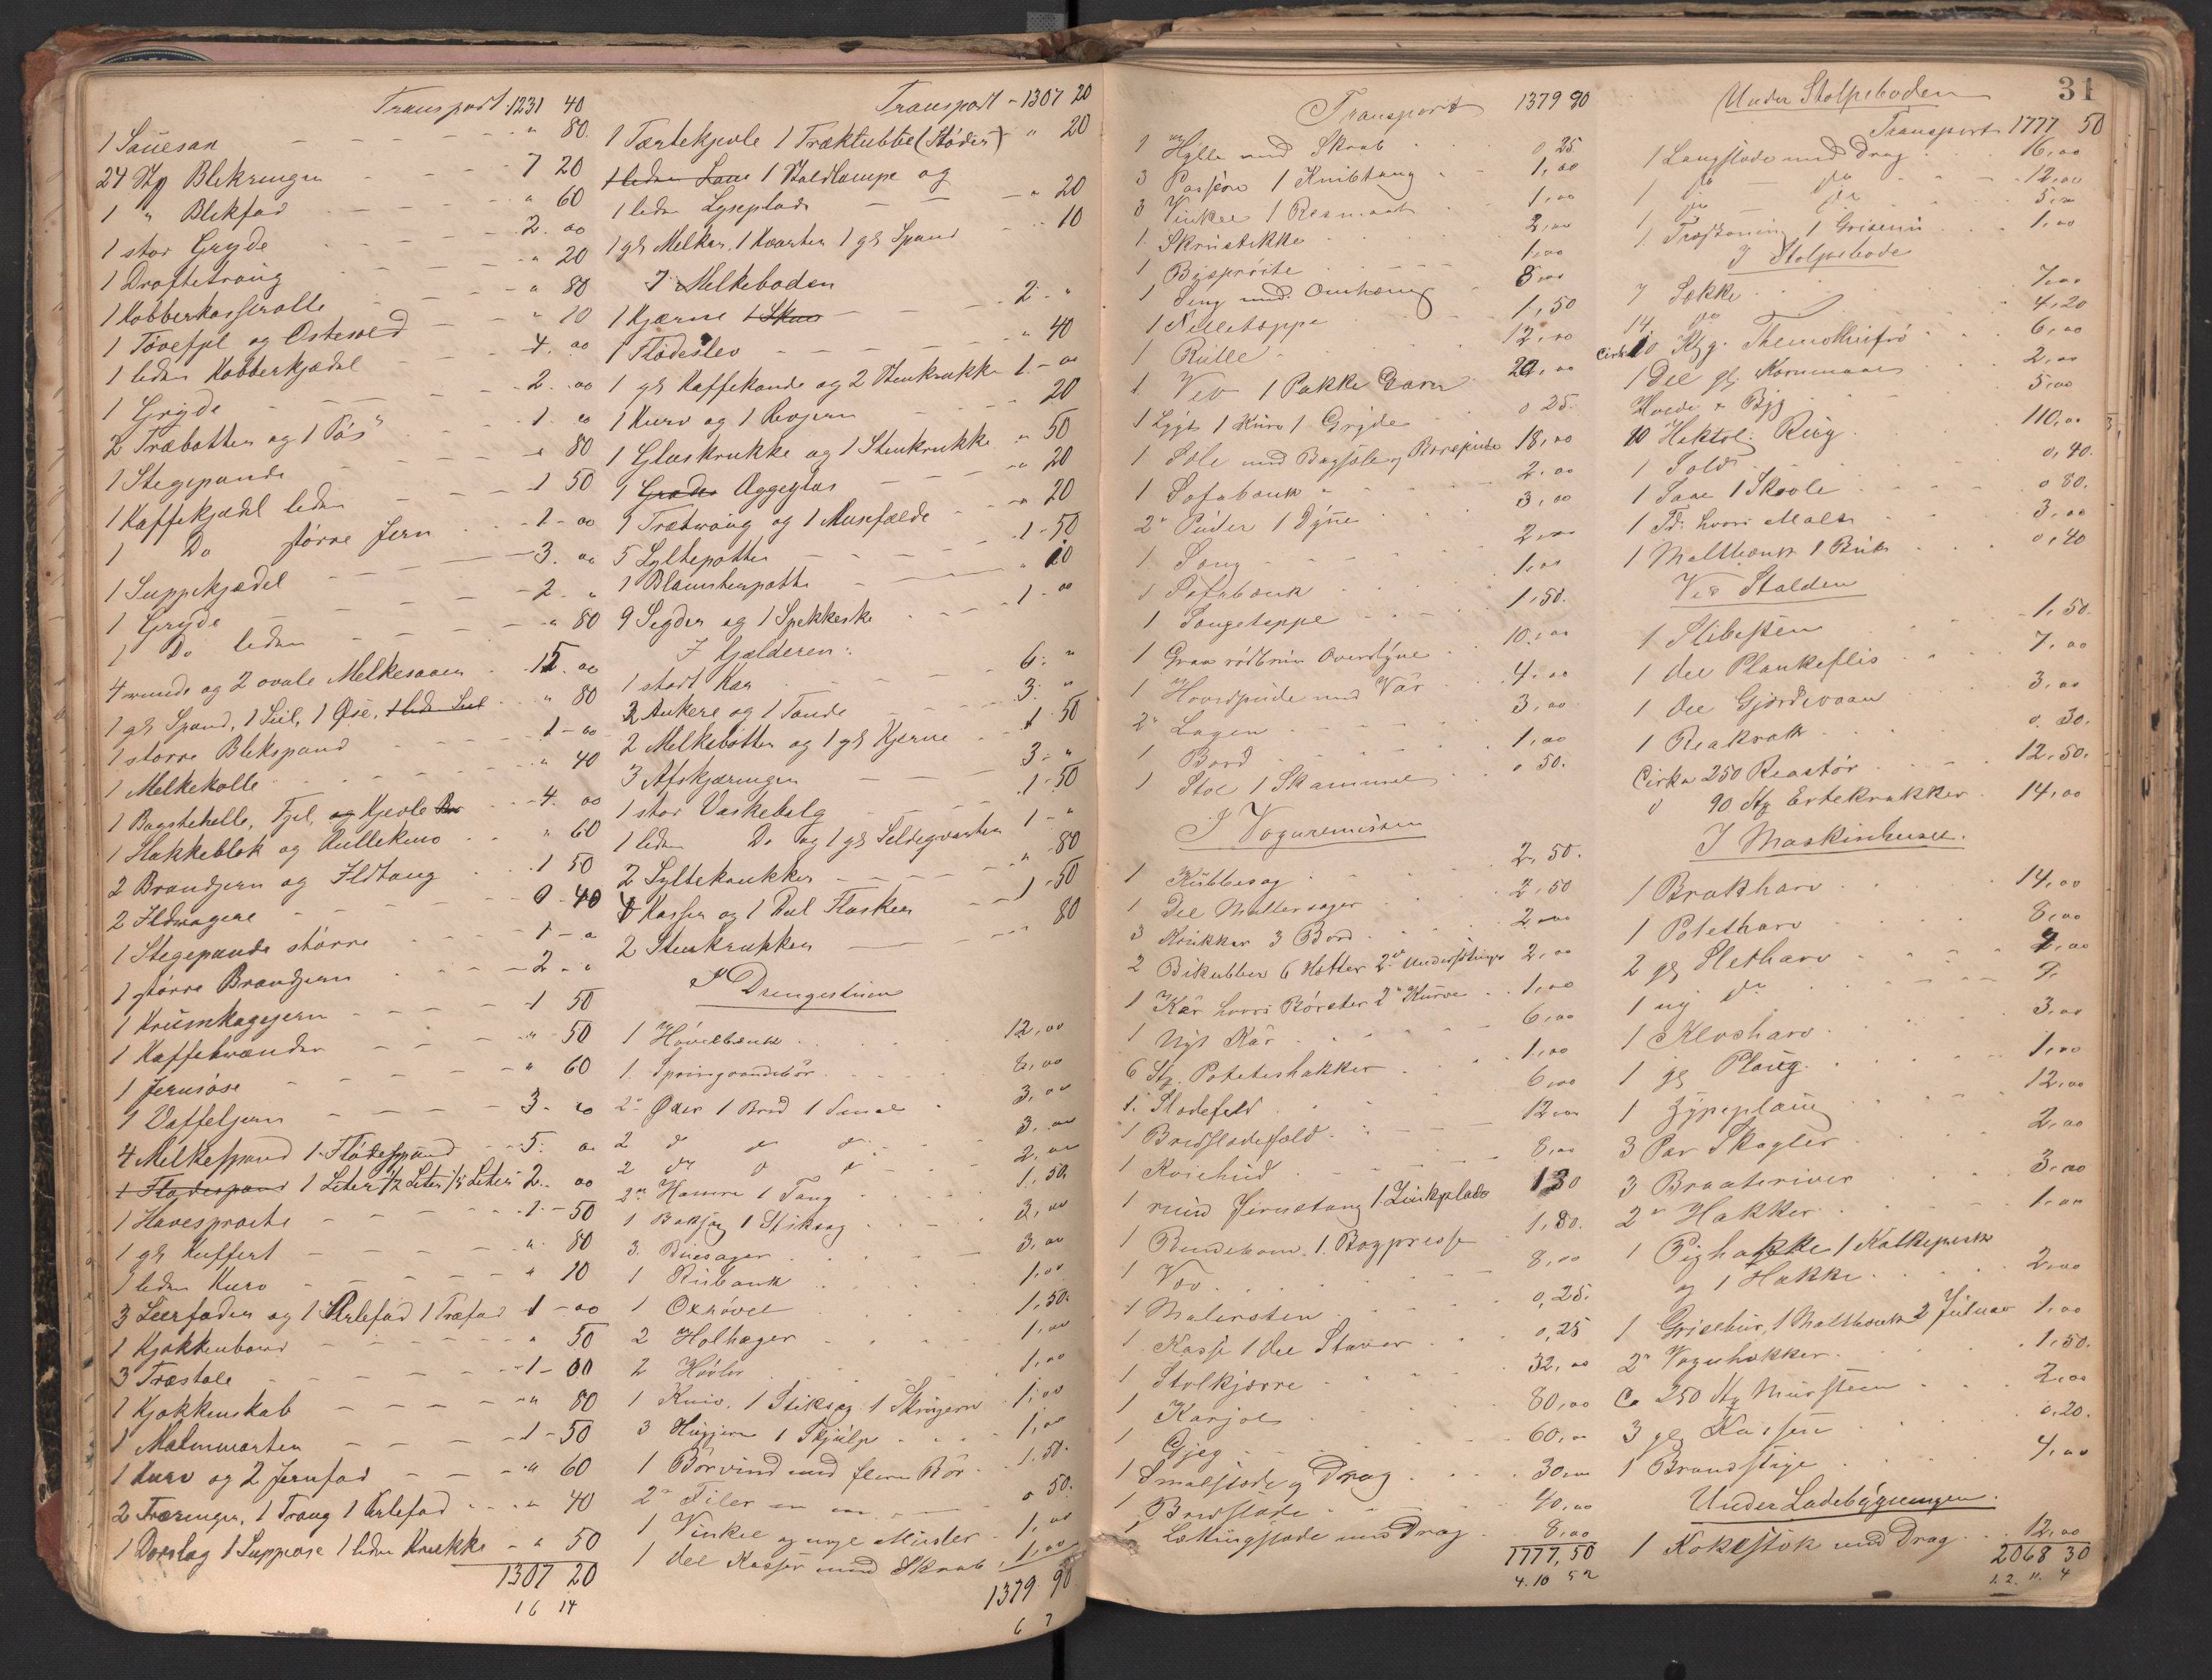 Transport 1231 40
1 Sauesax - - - " 80
24 Stp Blekringer - - 7 20
1 " Blekfad - - " 60
1 stor Gryde - - 2. 00
1 Droftetraug - - " 20
1 Kobberkasserolle " 80
1 Tøvefjel og Ostesold " 20
1 liden Kobberkjædel 4. 00
1 Gryde - - 2. 00
2 Træbøtter og 1 Pøs 1. 00
1 Stegepande " 80
1 Kaffekjedel liden 1 50
1 Do større Jern 1 - 00
1 Suppekjædel 3. 00
1 Gryde 2. "
1 Do liden " 80
4 runde og 2 ovale Melkesaaer 15. 00
1 gl Spand, 1 Seil, 1 Øse, 1 liden Seil " 80
1 større Blekspand 1 - 00
1 Melkekolle " 40
1 Bagstehelle, Fjel, og Kjevle 4. 00
1 Hakkeblok og Rullekniv " 60
2 Brandjern og Ildtang 1 50
2 Ildragere 0 40
1 Stegepande større 1 - "
1 større Brandjern 2 - "
1 Krumkagejern 1 50
1 Kaffebrænder " 50
1 Jernøse " 60
1 Vaffeljern 3. 00
4 Melkespand 1 Flødespand 5. 00
1 Flødespand 1 Liter 1/2 Liter 1/5 Liter 2. 00
1 Havesprøite 1 - 50
1 gl Kuffert " 80
1 liden Kurv " 10
3 Leerfader og 1 Ærlefad 1 Træfad 1 - 00
1 Kjøkkenbord " 50
3 Træstole 1 - 00
1 Kjøkkenskab " 80
1 Malmmorter 1 - 50
1 Kurv og 2 Jernfad " 60
2 Træringer, 1 Traug 1 Ærlefad " 40
1 Dørslag 1 Suppeøse 1 liden Krukke " 50
1307 20
16 14
Transport - 1307 20
1 Tærtekjevle 1 Træktubbe (Støder) " 20
1 liden Laas 1 Staldlampe og
1 liden Lyseplade - - " 20
1 gl Melkar, 1 Kvarter 1 gl Spand 10
I Melkeboden
1 Kjærne 1 Skaal 2 - "
1 Flødeslev " 40
1 gl Kaffekande og 2 Stenkrukker 1 - 00
1 Kurv og 1 Revjern 20
1 Glaskrukke og 1 Stenkrukke " 50
1 Æggeglas " 20
1 Trætraug og 1 Musefælde " 20
5 Syltepotter 1 - 50
1 Blomsterpotte " 10
9 Segder og 1 Spekkeske 1 - 00
I Kjælderen:
1 stort Kar 6. "
2 Ankere og 1 Tønde 3. "
2 Melkebøtter og 1 gl Kjerne 1 50
3 Afskjæringer 3 - "
1 stor Vaskebalg 1 - 50
1 liden Do og 1 gl Seldegvarter 1 - "
2 Syltekrukker " 80
4 Kasser og 1 Deel Flasker 1 - 50
2 Stenkrukker " 80
I Drengestuen
1 Høvelbænk 12,00
1 Springvandsbør 2,00
2 Øxer 1 Bred 1 Smal 3,00
2 d d d 3,00
2 d d d 2,00
2 Hamre 1 Tang 1,50
1 Baksag 1 Stiksag 2,00
3 Buesager 3,00
1 Rubank 1,00
1 Oxhøvel 1,50
2 Holhøger 1,00
2 Høvler 1,00
1 Kniv, 1 Stiksag 1 Skrujern 1,00
3 Hugjern 1 Skjølp 1,00
1 Børvind med flere Bør 1.50
2 Filer 0 50.
1 Vinkel og nogle Muster 1,00
1 del Kasser med Skrab 1,00
1379 90
6 7
Transport 1379 90
1 Hylle med Skrab 0,25
3 Passere 1 Knibtang 1,00
3 Vinkler 1 Resmaat 1,00
1 Skrustikke 2,00
1 Bysprøite 1,00
1 Seng med Omhæng 8,00
1 Velletæppe 1,50
1 Rulle 12,00
1 Vev 1 Pakke Garn 20,00
1 Lygt 1 Kurv 1 Gryde 0 25
1 Sele med Bagsele, Borepude 18,00
1 Sofabænk 2,00
2 Puder 1 Dyne 3,00
1 Seng 2,00
1 Sofabænk 1,00
1 Sengeteppe 1,50.
1 Graa rødbrun Overdyne 10,00
1 Hovedpude med Vår 4,00
2 Lagen 3,00
1 Bord 1,00
1 Stol 1 Skammel 0 50.
I Vognremissen
1 Kubbesag 2,50.
1 Del Møllersager 2,50
3 Krukker 3 Bord 2,00
2 Bikubber 6 Hatter 2 Understinger 2,00
1 Kar hvori Børster 2 Kurve 1,00
1 Nyt Kar 6,00
6 Stp. Poteteshakker 1,00
1 Sladefeld 6,00
1 Bredsladefæld 12,00
1 Koiehud 8,00
1 rund Jernstang 1 Zinkplade 130
1 Rendebom, 1 Bogpresse 1,80.
1 Vev 8,00
1 Malersten 0,25.
1 Kasse 1 del Staver 0,25
1 Stolkjærre 32,00
1 Karjol 80,00
1 Gjeg 60,00
1 Smalslæde og Drag 30,00
1 Bredslæde 40,00
1 Letlingslæde med Drag 8,00
1777,50
4.10 52
31
Under Stolpeboden
Transport 1777 50
1 Langslæde med Drag 16,00
1 do do 12,00
1 do do 5,00
1 Træskoning 1 Grisenin 1,00
I Stolpebode
7 Sække 7,00
14 do 4,20
Cirka 10 Klg. Themotheifrø 6,00
1 Del gl. Kornmaal 2,00
Hvede & Byg 5,00
10 Hektol. Rug 110,00
1 Sold 0,40.
1 Saae 1 Skovle 0 80.
1 Td. hvori Malt 3,00
1 Maltbænk 1 Bøk 0,40
Ved Stalden
1 Slibesten 1,50.
1 del Plankeflis 7,00
1 del Gjerdevaan 3,00
1 Reakrak 0. 30.
Cirka 250 Reastør 12,50.
" 90 Stp Ertekrakker 14,00
I Maskinhuset.
1 Brakharv 14,00
1 Potetharv 8,00
2 gl Sletharv 4,00
1 ny do 9.
1 Kloharv 3,00
1 gl Ploug 1,00
1 Hypeploug 12,00
3 Par Skagler 2,00
3 Braateriver 3,00
2 Hakker 1,00
1 Pighakke 1 Kalkepersk
og 1 Hakke 2,00
1 Grisebur, 1 Maltbænk 2 Juluer 1,00
2 Vognhakker 1,50.
Ca 250 Stp Mursteen 2,00
3 gl Kasser 0,20.
1 Brandstige 4,00
Under Ladebygningen.
1 Kokestok med Drag 12,00
2068 30
1.2. 11. 4